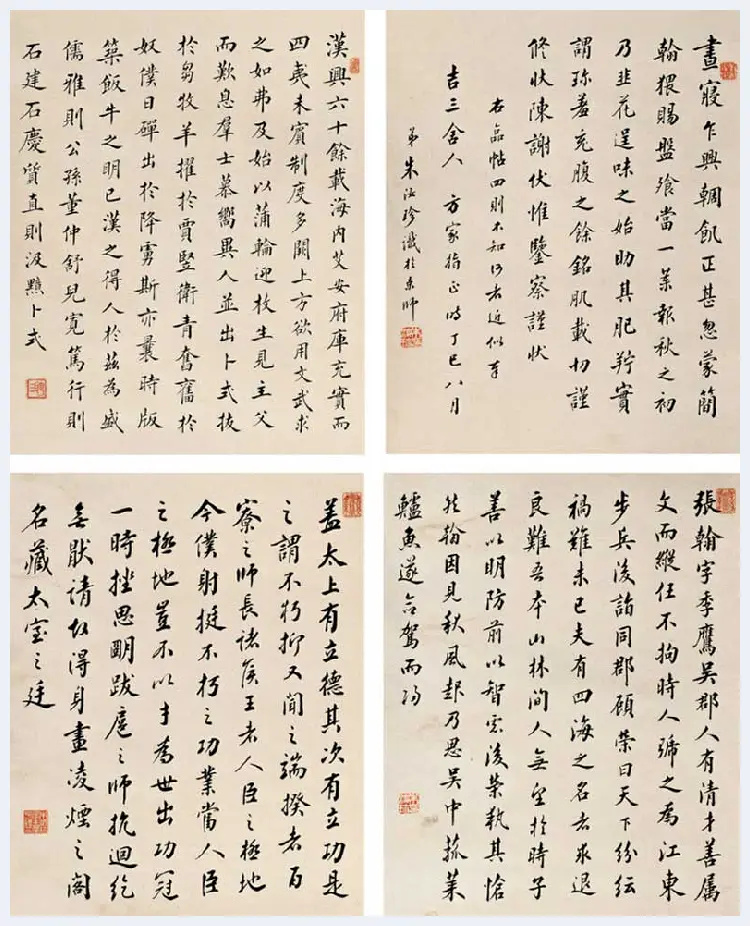 晝寢乍興輖飢正甚忽蒙簡
翰猥賜盤飧當一葉報秋之初
乃韭花逞味之始助其肥羜實
謂珎羞充腹之餘銘肌載切謹
修狀陳謝伏惟鑒察謹狀
右臨帖四則不知何者近似奉
吉三舍人 方家指正 時丁巳八月
弟朱汝珍識於京師
漢興六十餘載海內艾安府庫充實而
四夷未賓制度多闕上方欲用文武求
之如弗及始以蒲輪迎枚生見主父
而歎息羣士慕嚮異人並出卜式拔
於芻牧羊擢於賈豎衛青奮舊於
奴僕日磾出於降虜斯亦曩時版
築飯牛之明已漢之得人於茲為盛
儒雅則公孫董仲舒兒寬篤行則
石建石慶質直則汲黯卜式
張翰字季鷹吳郡人有清才善屬
文而縱任不拘時人號之為江東
步兵後詣同郡顧榮曰天下紛紜
禍難未已夫有四海之名者求退
良難吾本山林間人無望於時子
善以明防前以智慮後榮執其愴
然翰因見秋風起乃思吳中菰菜
鱸魚遂命駕而歸
蓋太上有立德其次有立功是
之謂不朽抑又聞之端揆者百
寮之師長諸侯王者人臣之極地
今僕射挺不朽之功業當人臣
之極地豈不以才為世出功冠
一時挫思明跋扈之師抗迴紇
無厭請故得身畫凌煙之閣
名藏太室之廷